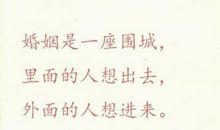 婚姻是一座围城，
里面的人想出去，
外面的人想进来。